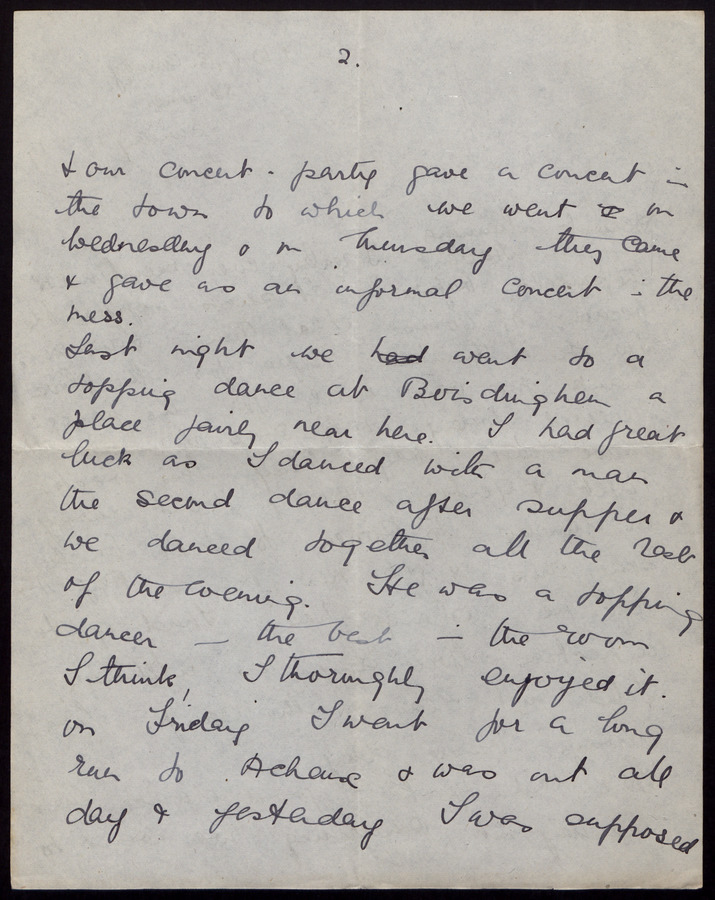 2.
& our concert-party gave a concert in
the town to which we went on
Wednesday & on Thursday they came
& gave us an informal concert in the
mess.
Last night we had went to a
topping dance at Boisdinghem a
place fairly near here. I had great
luck as I danced with a man
the second dance after supper &
we danced together all the rest
of the evening. He was a topping
dancer — the best in the room
I think, I thoroughly enjoyed it.
on Friday I went for a long
run to & was out all
day & yesterday I was supposed